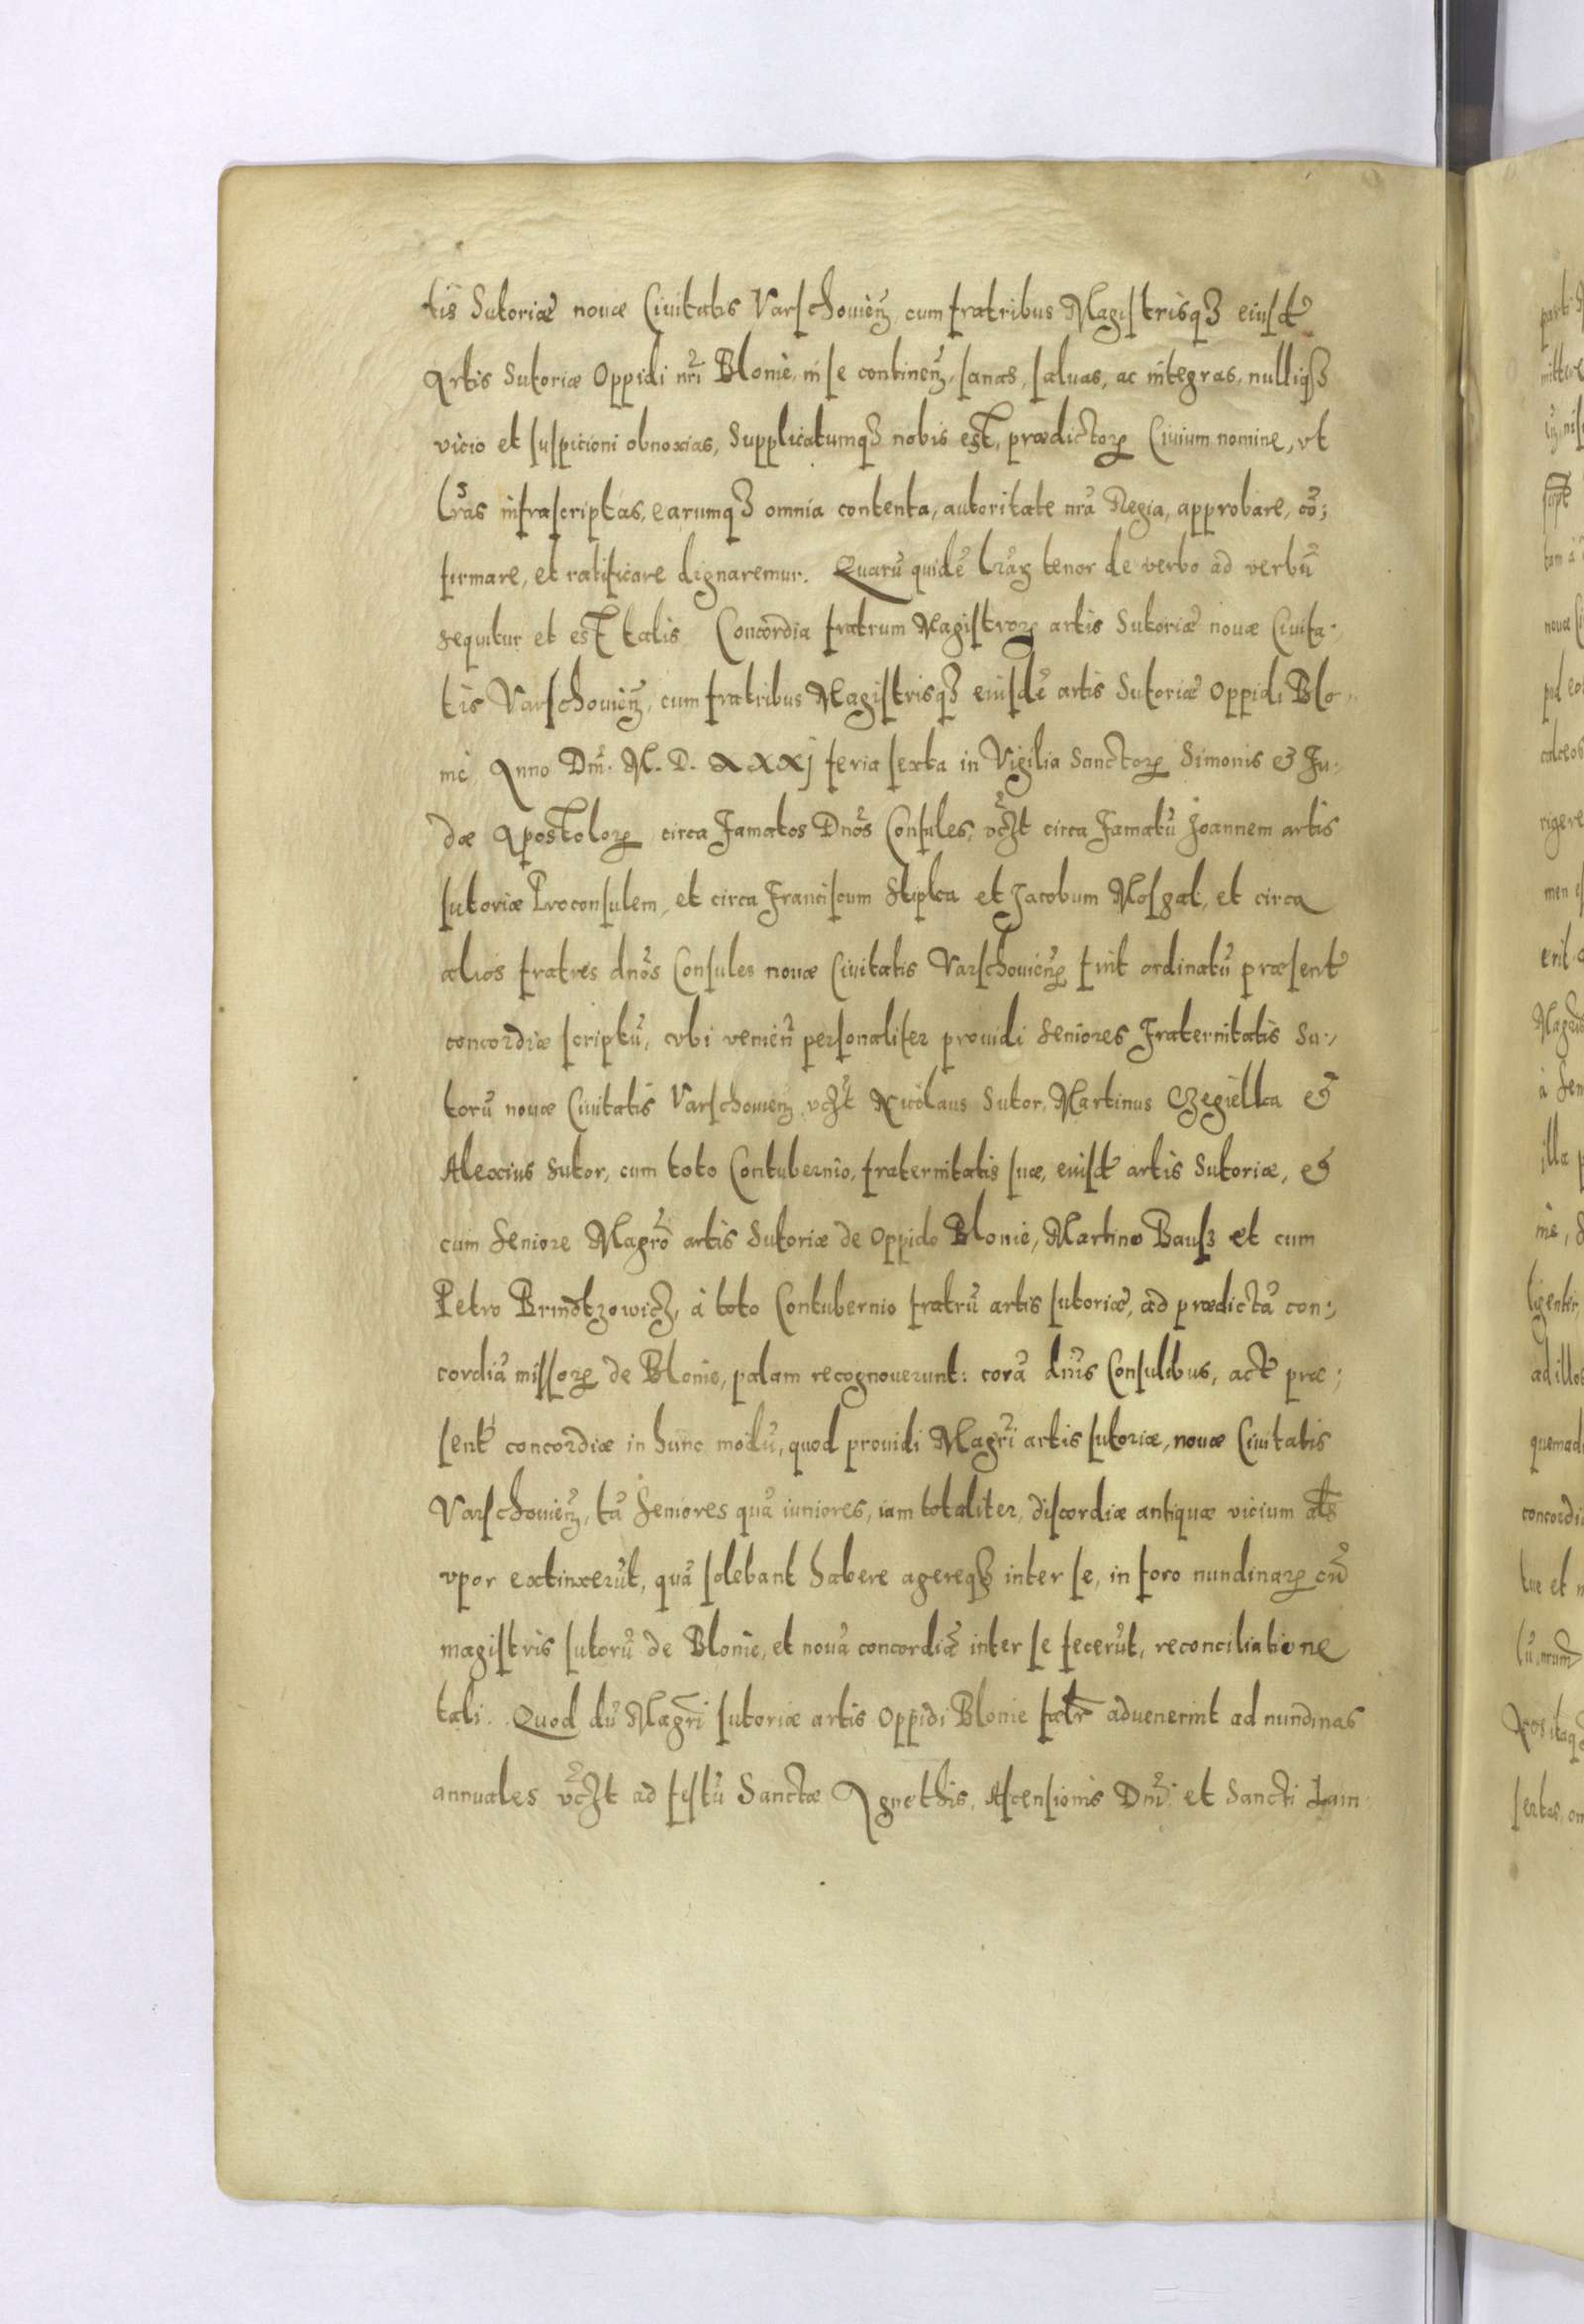 tis Sutoriæ nouæ Ciuitatis Varschouień, cum fratribus Magistrisqȝ eiusdē
Artis Sutoriæ Oppidi nr̃i Blonie, in se contineñ, sanas, saluas, ac integras, nulliqȝ
vicio et suspicioni obnoxias, Supplicatumqȝ nobis est, prædictorꝝ Ciuium nomine, vt
lr̃as infrascriptas, earumqȝ omnia contenta, autoritate nr̃a Regia, approbare, cõ;
firmare, et ratificare dignaremur. Quarũ quidẽ lr̃aꝝ tenor de verbo ad verbũ
sequitur et est talis. Concordia fratrum Magistrorꝝ artis Sutoriæ nouæ Ciuita:,
tis Varschouień, cum fratribus Magistrisqȝ eiusdẽ artis Sutoriæ Oppidi Blo
nie, Anno Dm̃. M. D. XXXj feria sexta in Vigilia Sanctorꝝ Simonis & Ju:,
dæ Apostolorꝝ circa Famatos Dnõs Consules, vcȝt circa Famatũ Joannem artis
sutoriæ Proconsulem, et circa Franciscum Stiplca et Jacobum Mosgal, et circa
alios fratres dnõs Consules nouæ Ciuitatis Varschouieñꝝ fuit ordinatũ præsent̃
concordiæ scriptũ, vbi venieñ personaliter prouidi Seniores Fraternitatis Su:,
torũ nouæ Ciuitatis Varschouień vcȝt Nicolaus Sutor, Martinus Czegiellca &
Alexius Sutor, cum toto Contubernio, fraternitatis suæ, eiusd̃ artis Sutoriæ, &
cum Seniore Magrõ artis Sutoriæ de Oppido Blonie, Martino Bausz et cum
Petro Brindtzowicz, à toto Contubernio fratrũ artis sutoriæ, ad prædictã con:,
cordiã missorꝝ de Blonie, palam recognouerunt: corã dnis Consulibus, act̃ præ;
sent̃ concordiæ in hunc modũ, quod prouidi Magrĩ artis sutoriæ, nouæ Ciuitatis
Varschouień, tã Seniores quã iuniores, iam totaliter, discordiæ antiquæ vicium als
vpor extinxerũt, quã solebant habere agereqȝ inter se, in foro nundinarꝝ cũ
magistris sutorũ de Blonie, et nouã concordiã inter se fecerũt, reconciliatione
tali. Quod dũ Magrĩ sutoriæ artis Oppidi Blonie advenerint ad nundinas
annuales vcȝt ad festũ Sanctæ Agnethis, Ascensionis Dnĩ. et Sancti Lam